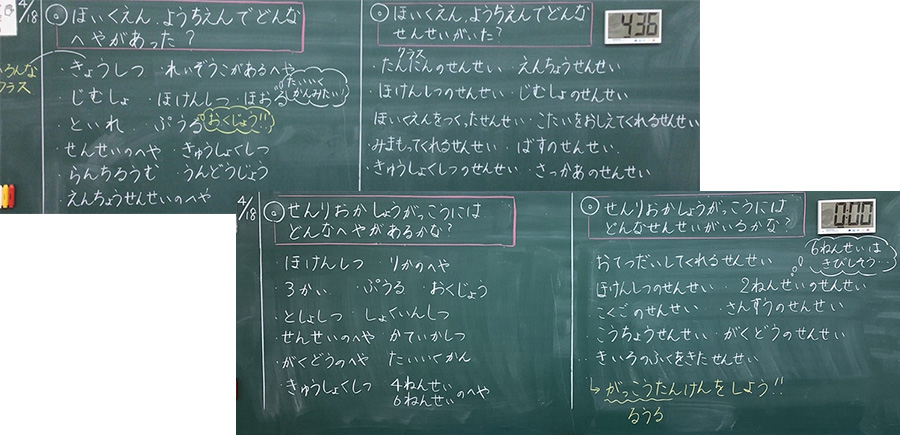 4/18
ほいくえん、ようちえんでどんな
へやがあった？
ろんな
クラス
・きょうしつ ・れいぞうこがあるへや
・じむしょ ・ほけんしつ ・ほおる
たいいく
かんみたい！
・といれ ・ぷうる おくじょう!!
・せんせいのへや ・きゅうしょくしつ
・らんちるうむ ・うんどうじょう
・えんちょうせんせいのへや
ほいくえん、ようちえんでどんな
せんせいがいた？
4:36
クラス
・たんにんのせんせい ・えんちょうせんせい
・ほけんしつのせんせい ・じむしょのせんせい
・ほいくえんをつくったせんせい ・こたいをおしえてくれるせんせい
・みまもってくれるせんせい ・ばすのせんせい
・きゅうしょくしつのせんせい ・さっかあのせんせい
4/18
せんりおかしょうがっこうには
どんなへやがあるかな？
・ほけんしつ ・りかのへや
・3かい ・ぷうる ・おくじょう
・としょしつ ・しょくいんしつ
・せんせいのへや ・かていかしつ
・がくどうのへや ・たいいくかん
・きゅうしょくしつ 4ねんせい
6ねんせいのへや
せんりおかしょうがっこうには
どんなせんせいがいるかな？
0:00
6ねんせいは
きびしそう…
・おてつだいしてくれるせんせい
・ほけんしつのせんせい ・2ねんせいのせんせい
・こくごのせんせい ・さんすうのせんせい
・こうちょうせんせい ・がくどうのせんせい
・きいろのふくをきたせんせい
→がっこうたんけんをしよう!!
るうる